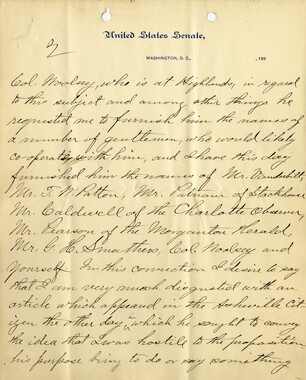 2
United States Senate,
WASHINGTON, D. C., , 189
Col. Woolsey, who is at Highlands, in regard
to this subject and among other things he
requested me to furnish him the names of
a number of gentlemen, who would likely
co-operate with him, and I have this day
furnished him the names of Mr. Vanderbilt,
Mr. T. W. Patton, Mr. of Stackhouse
Mr. Caldwell of the Charlotte Observer,
Mr. Pearson of the Morganton Herald,
Mr. G. H. Smathers, Col. Woolsey and
yourself. In this connection I desire to say
that I am very much disgusted with an
article which appeared in the Asheville Cit-
izen the other day in which he sought to convey
the idea that I was hostile to the proposition
his purpose being to do or say something